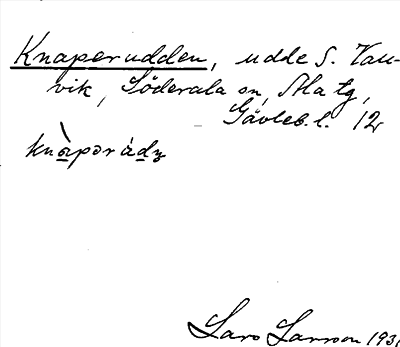 Knaperudden, udde S. Vau-
vik, Söderala sn, Ala tg,
Gävleb. l. 12
knàpərádz
Lars Larsson 193